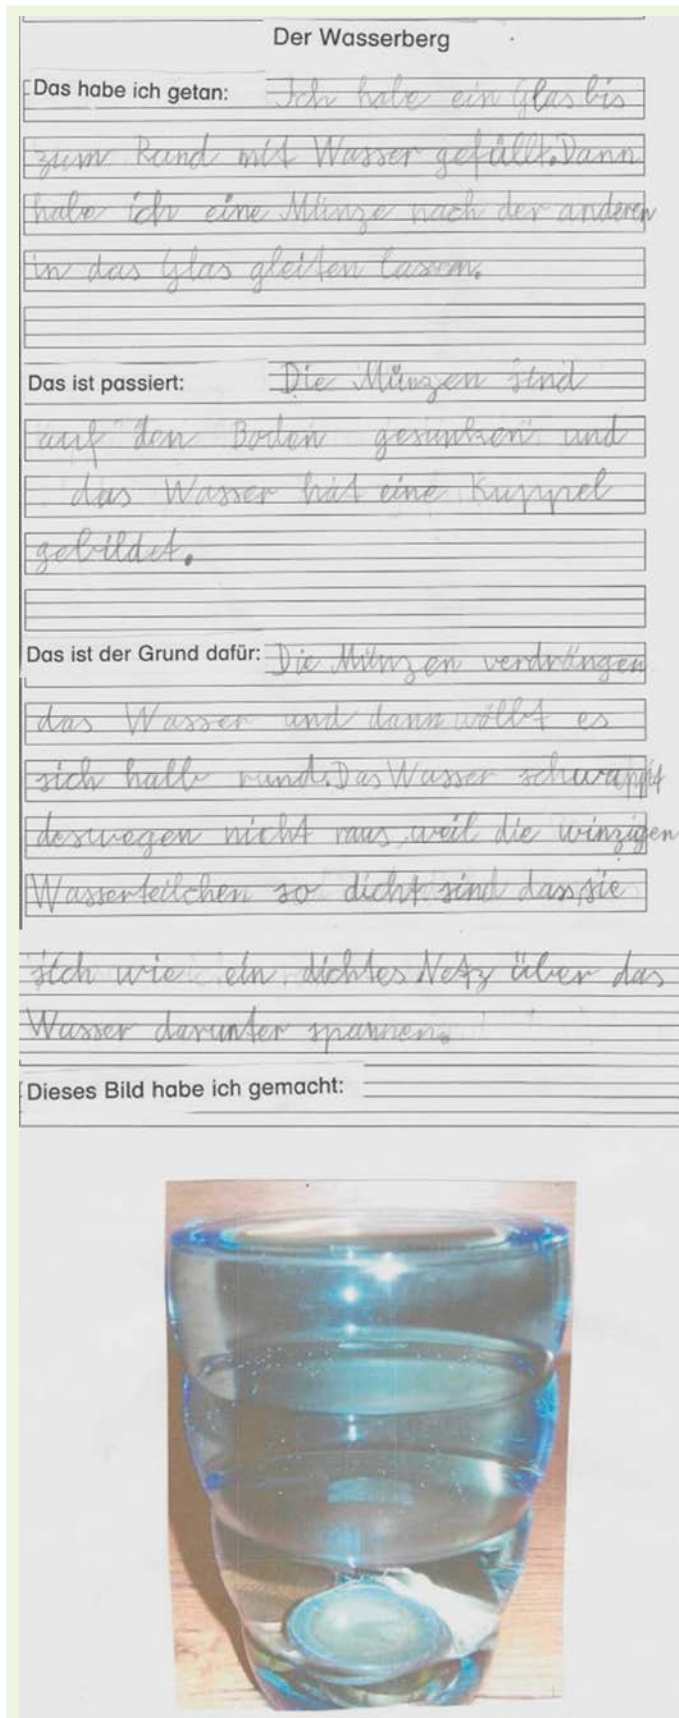 Der Wasserberg
Das habe ich getan: Ich habe ein Glas bis
zum Rand mit Wasser gefüllt. Dann
habe ich eine Münze nach der anderen
in das Glas gleiten lassen.
Das ist passiert: Die Münzen sind
auf den Boden gesunken und
das Wasser hat eine Kuppel
gebildet.
Das ist der Grund dafür: Die Münzen verdrängen
das Wasser und dann wölbt es
sich halb rund. Das Wasser schwappt
deswegen nicht raus, weil die winzigen
Wasserteilchen so dicht sind dass, sie
sich wie ein dichtes Netz über das
Wasser darunter spannen.
Dieses Bild habe ich gemacht: